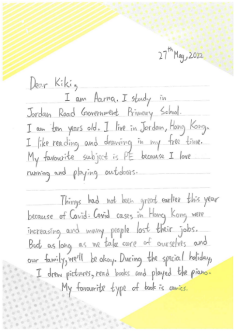 27th May, 2022
Dear Kiki,
I am Aarna, I study in
Jordan Road Government Primary School.
I am ten years old. I live in Jordan, Hong Kong.
I like reading and drawing in my free time.
My favourite subject is PE because I love
running and playing outdoors.
Things had not been great earlier this year
because of Covid. Covid cases in Hong Kong were
increasing and many people lost their jobs.
But as long as we take care of ourselves and
our family, we'll be okay. During the special holiday,
I drew pictures, read books and played the piano.
My favourite type of book is comics.